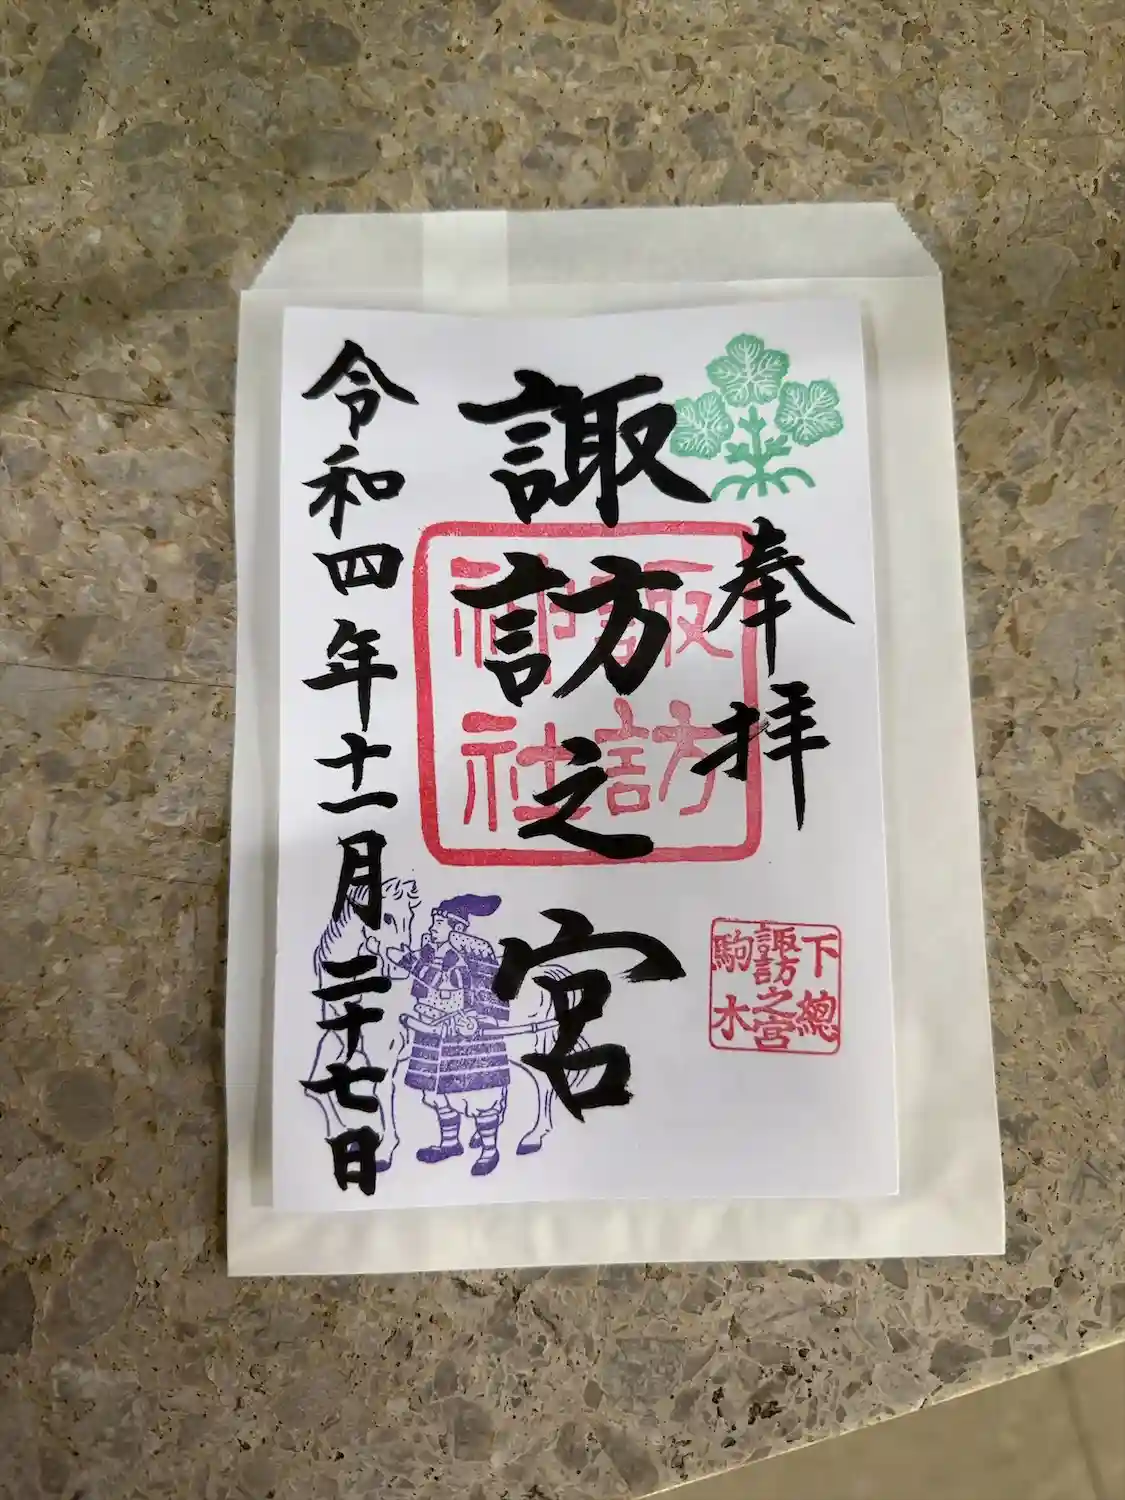 奉拝
諏訪之宮
諏訪
神社
下總
諏訪之宮
駒木
令和四年十一月二十七日